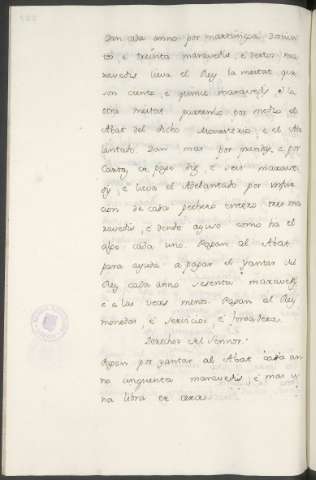 Dan cada anno por martiniega docien
tos e treinta maravedis, e destos ma
ravedis lieva el Rey la meitat que
son ciento, e quince maravedis, e la
otra meitat partenlo por medio el
Abat del dicho Monesterio, e el Ade
lantado. Dan mas por e por
diez, e seis marave
dis, e lieva el Adelantado por
cion de cada pechero entero tres ma
ravedis, e dende ayuso como ha el
algo cada uno. Pagan al Abat
para ayuda a pagar el yantar del
Rey cada anno sesenta maravedis
e a las veces menos. Pagan al Rey
monedas, e servicios, e fonsadera.
Derechos del Sennor.
Pagan por yantar al Abat cada an
no cinquenta maravedis, e mas u
na libra de cera.